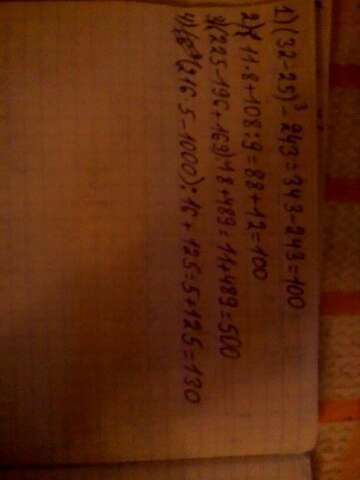 1) (32-25)³-243=343-243=100
2) 11·8+108:9=88+12=100
3) (225-196+169):18+489=11+489=500
4) (216·5-1000):16+125=5+125=130